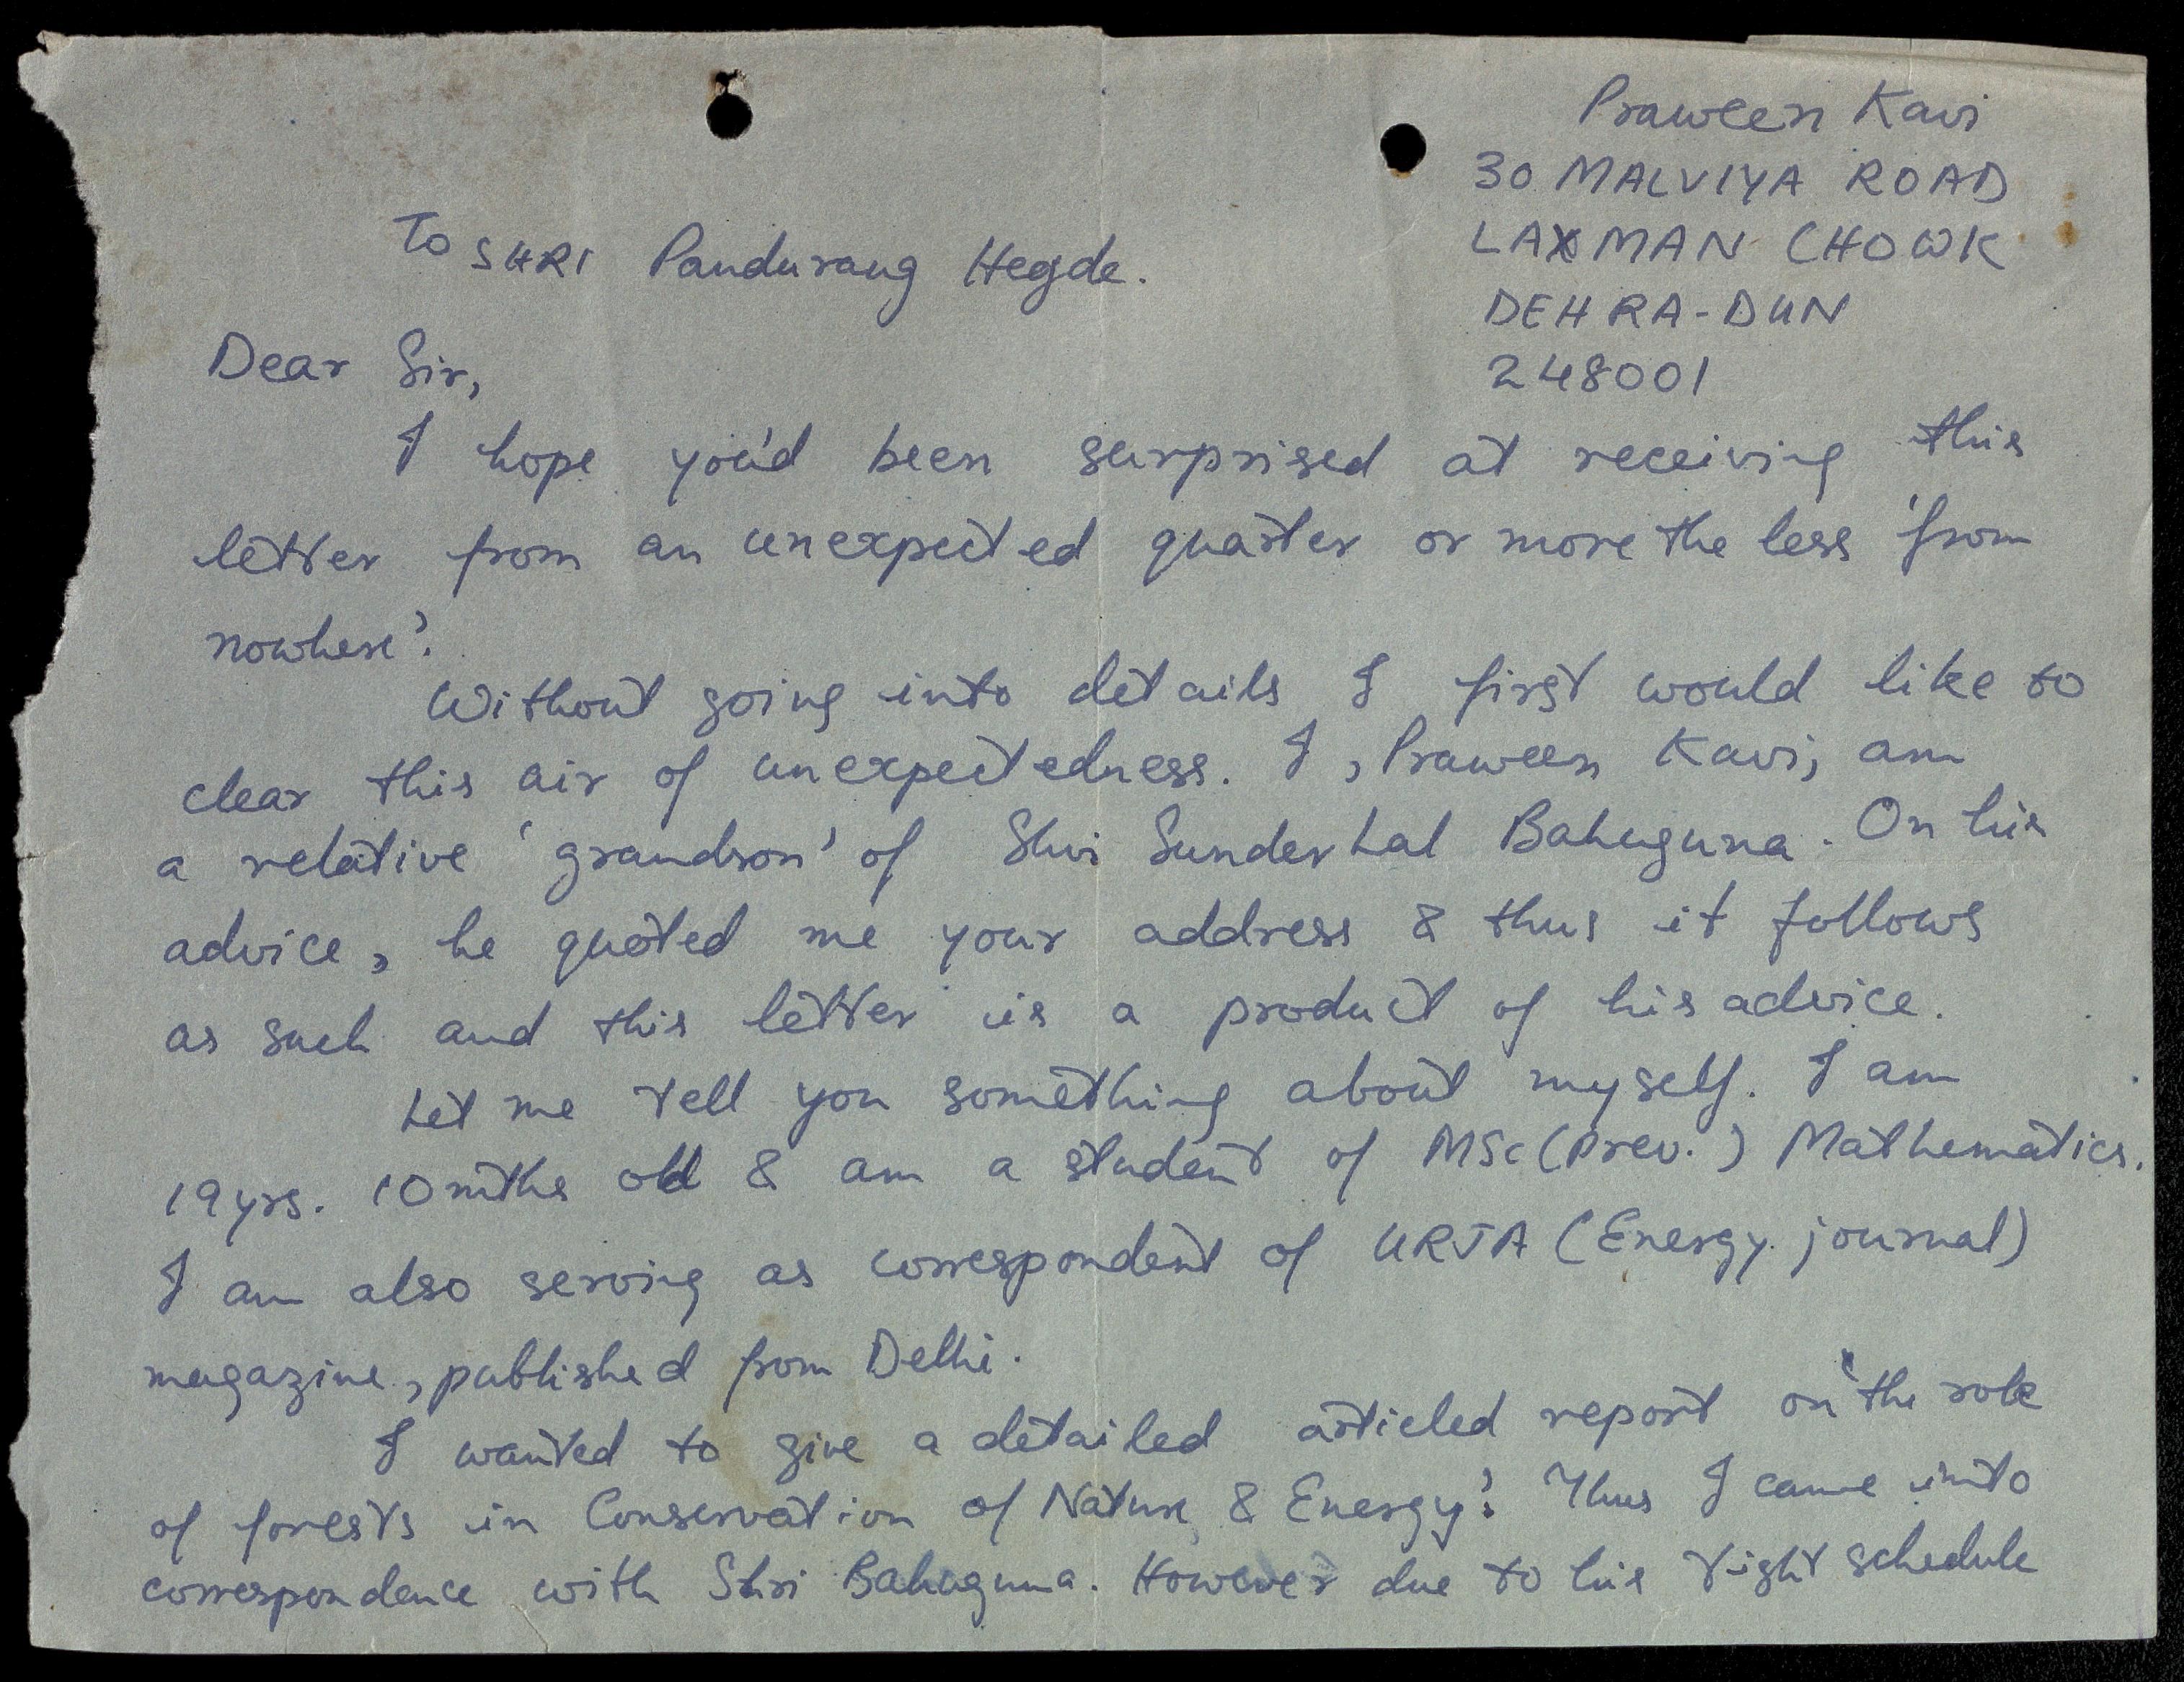 Praween Kavi
30 MALVIYA ROAD
LAXMAN CHOWK
DEHRA-DUN
248001
To SHRI Pandurang Hegde.
Dear Sir,
I hope you'd been surprised at receiving this
letter from an unexpected quarter or more the less 'from
nowhere'.
Without going into details I first would like to
clear this air of unexpectedness. I, Praween Kavi, am
a relative 'grandson' of Shri Sunder Lal Bahuguna. On his
advice, he quoted me your address & thus it follows
as such and this letter is a product of his advice.
Let me tell you something about myself. I am
19 yrs. 10 mths old & am a student of MSc (Prev.) Mathematics.
I am also serving as correspondent of URJA (Energy journal)
magazine, published from Delhi.
I wanted to give a detailed articled report on "the role
of forests in Conservation of Nature & Energy". Thus I came into
correspondence with Shri Bahuguna. However due to his tight schedule